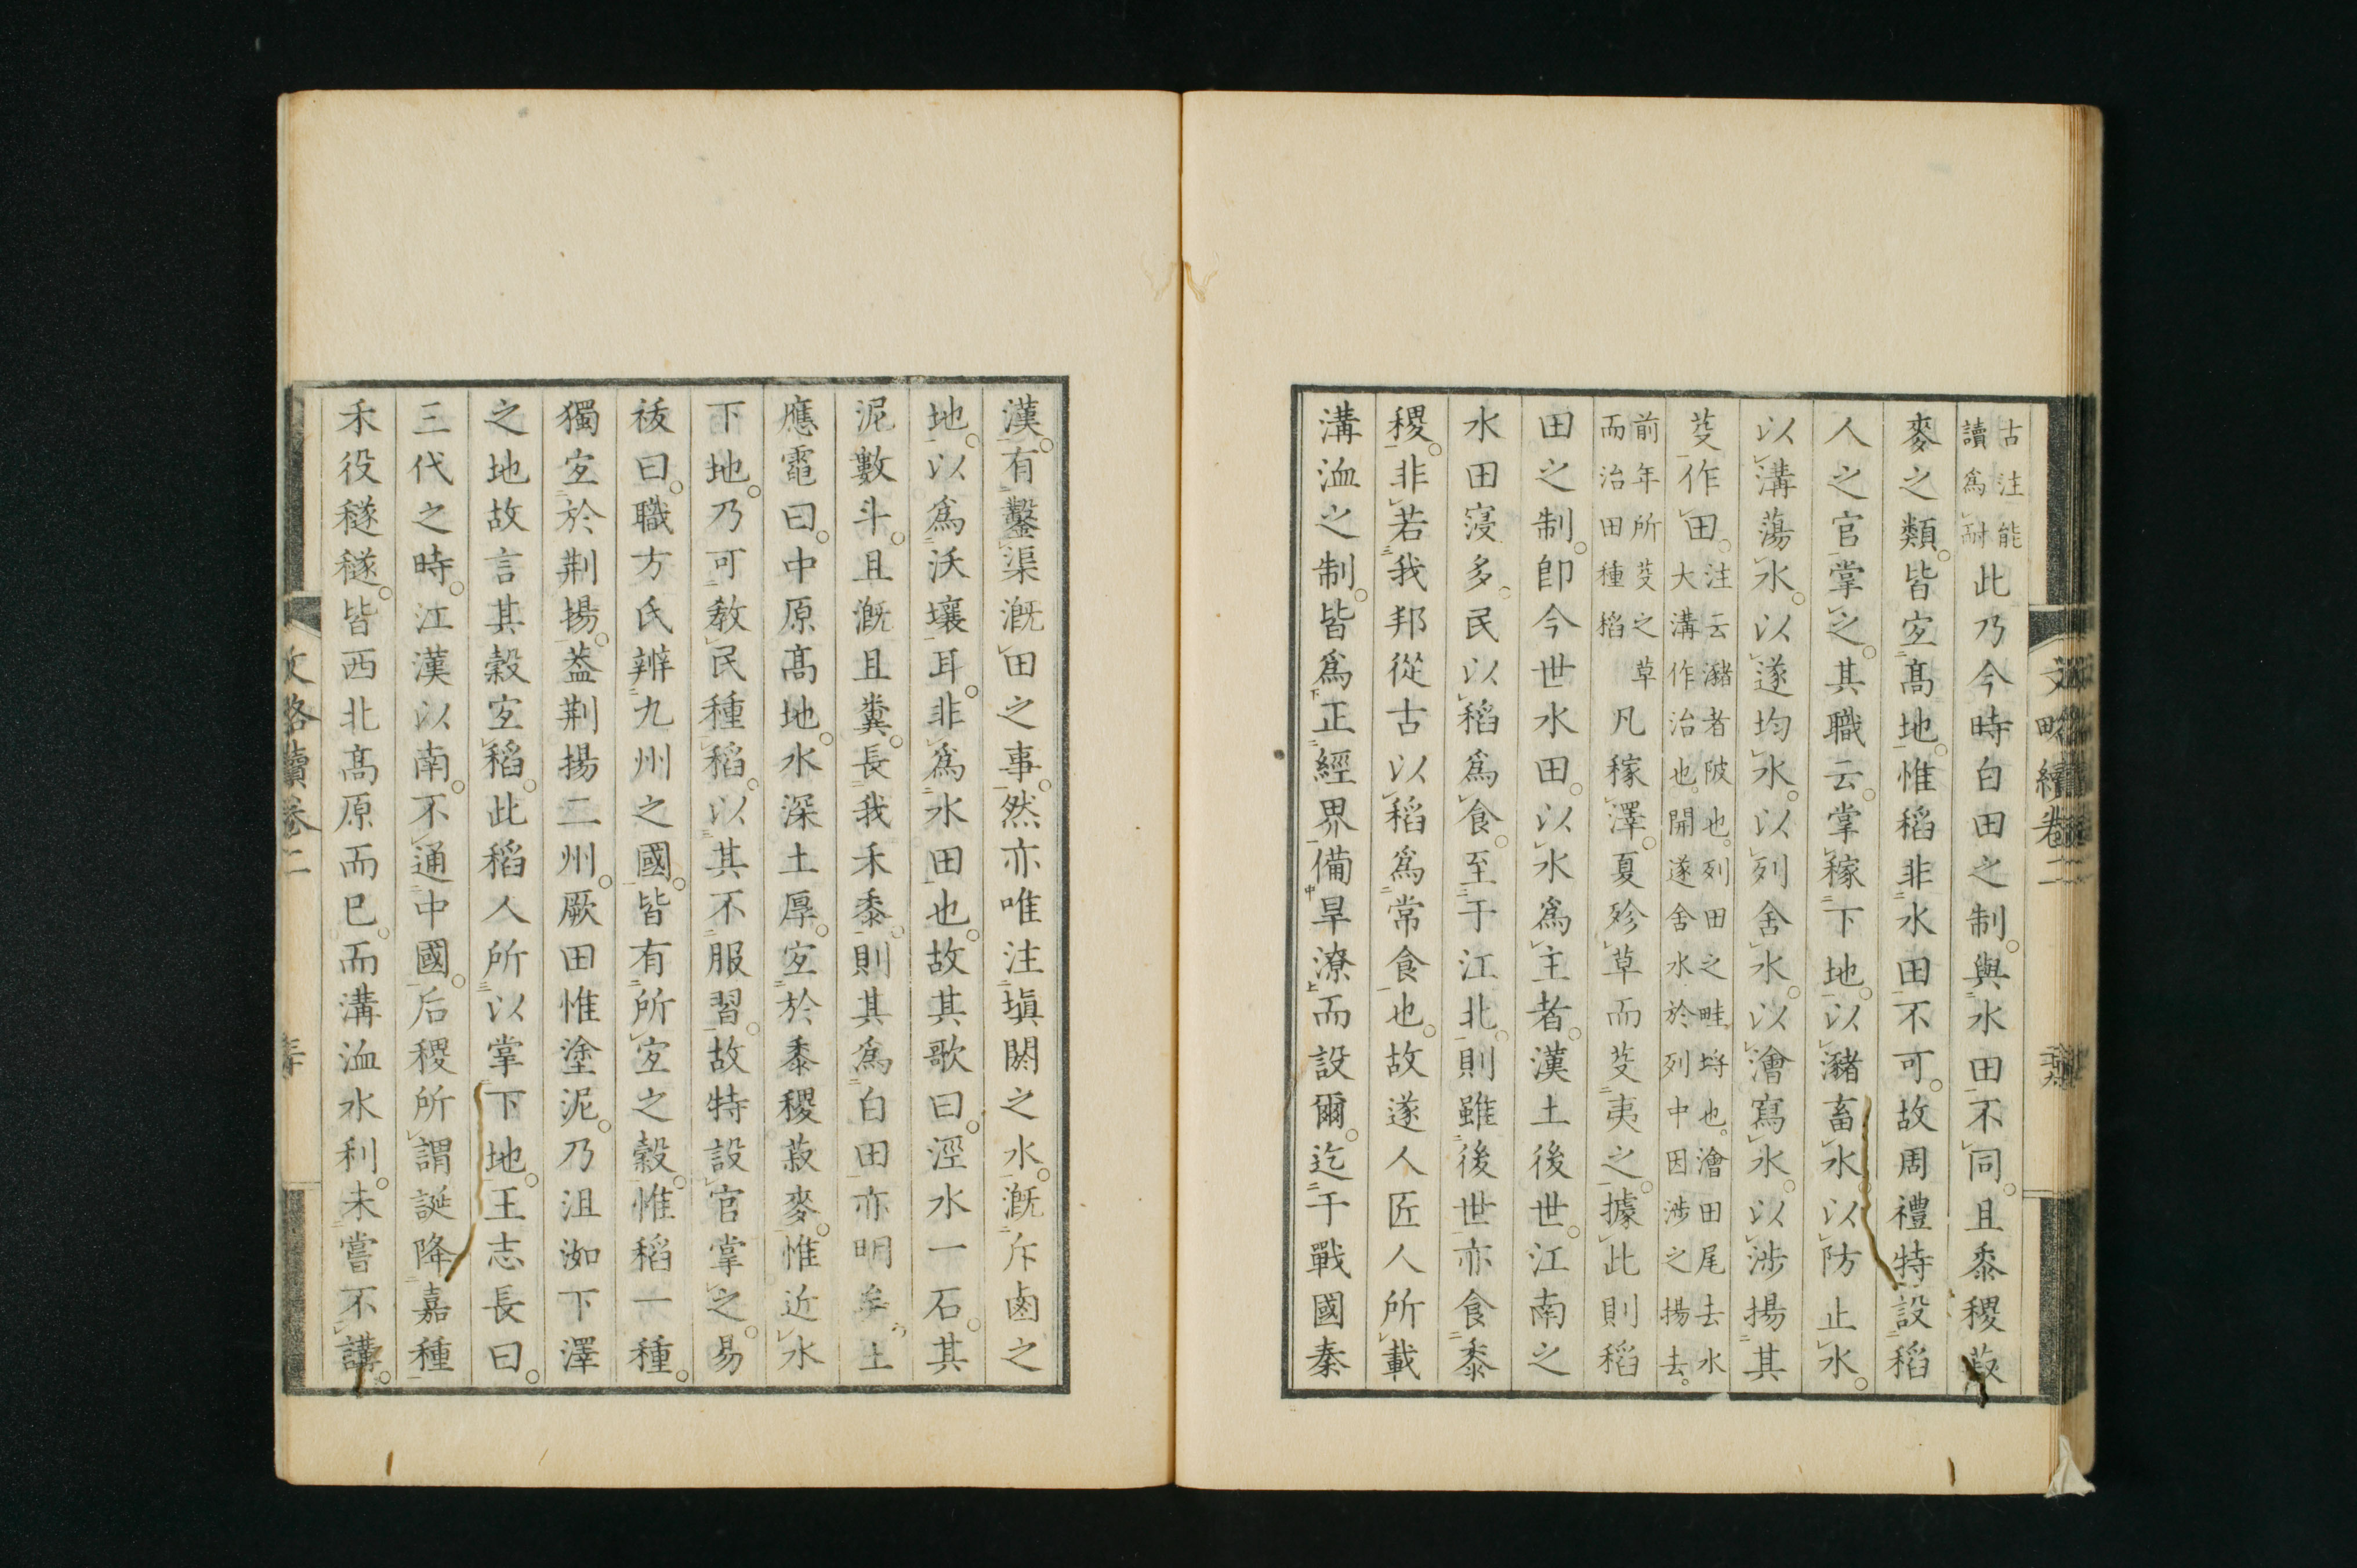 古注能讀爲耐此乃今時白田之制。與水田不同。且黍稷菽
麥之類。皆宐高地。惟稻非水田不可。故周禮特設稻
人之官掌之。其職云。掌稼下地。以瀦畜水。以防止水。
以溝蕩水。以遂均水。以列舍水。以澮寫水。以涉揚其
芟作田。注云瀦者陂也。列田之畦㽟也。澮田尾去水
大溝作治也。開遂舍水於列中因涉之揚去。
前年所芟之草
而治田種稻凡稼澤。夏殄草而芟夷之。據此則稻
田之制。卽今世水田。以水爲主者。漢土後世。江南之
水田寖多。民以稻爲食。至于江北。則雖後世亦食黍
稷。非若我邦從古以稻爲常食也。故遂人匠人所載
溝洫之制。皆爲正經界備旱潦而設爾。迄于戰國秦
漢。有鑿渠漑田之事。然亦唯注塡閼之水。漑斥鹵之
地。以爲沃壤耳。非爲水田也。故其歌曰。涇水一石。其
泥數斗。且漑且糞。長我禾黍。則其爲白田亦明矣。土
應電曰。中原高地。水深土厚。宐於黍稷菽麥。惟近水
下地。乃可敎民種稻。以其不服習。故特設官掌之。易
祓曰。職方氏辨九州之國。皆有所宐之穀。惟稻一種。
獨宐於荆揚。葢荆揚二州。厥田惟塗泥。乃沮洳下澤
之地故言其穀宐稻。此稻人所以掌下地。王志長曰。
三代之時。江漢以南。不通中國。后稷所謂誕降嘉種
禾役穟穟。皆西北高原而已。而溝洫水利。未嘗不講。
文略續卷二
文略續卷二